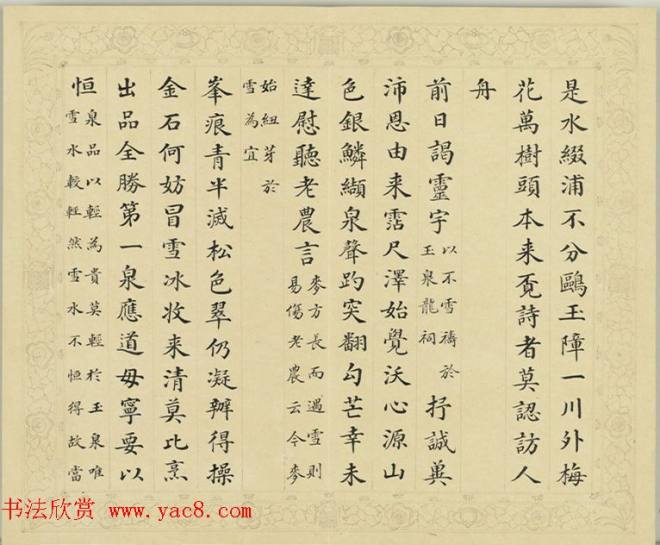 是水綴浦不分鷗玉障一川外梅
花萬樹頭本来覔詩者莫認訪人
舟
前日謁靈宇以不雪禱於玉泉龍祠抒誠兾
沛恩由来霑尺澤始覺沃心源山
色銀鱗纈泉聲趵突翻勾芒幸未
達慰聽老農言麥方長而遇雪則易傷老農云今麥
始紐芽於雪為宜
峯痕青半滅松色翠仍凝辦得操
金石何妨冒雪冰收来清莫比烹
出品全勝第一泉應道毋寧要以
恒泉品以輕為貴莫輕於玉泉唯雪水較輕然雪水不恒得故當
书法欣赏 www.yac8.com